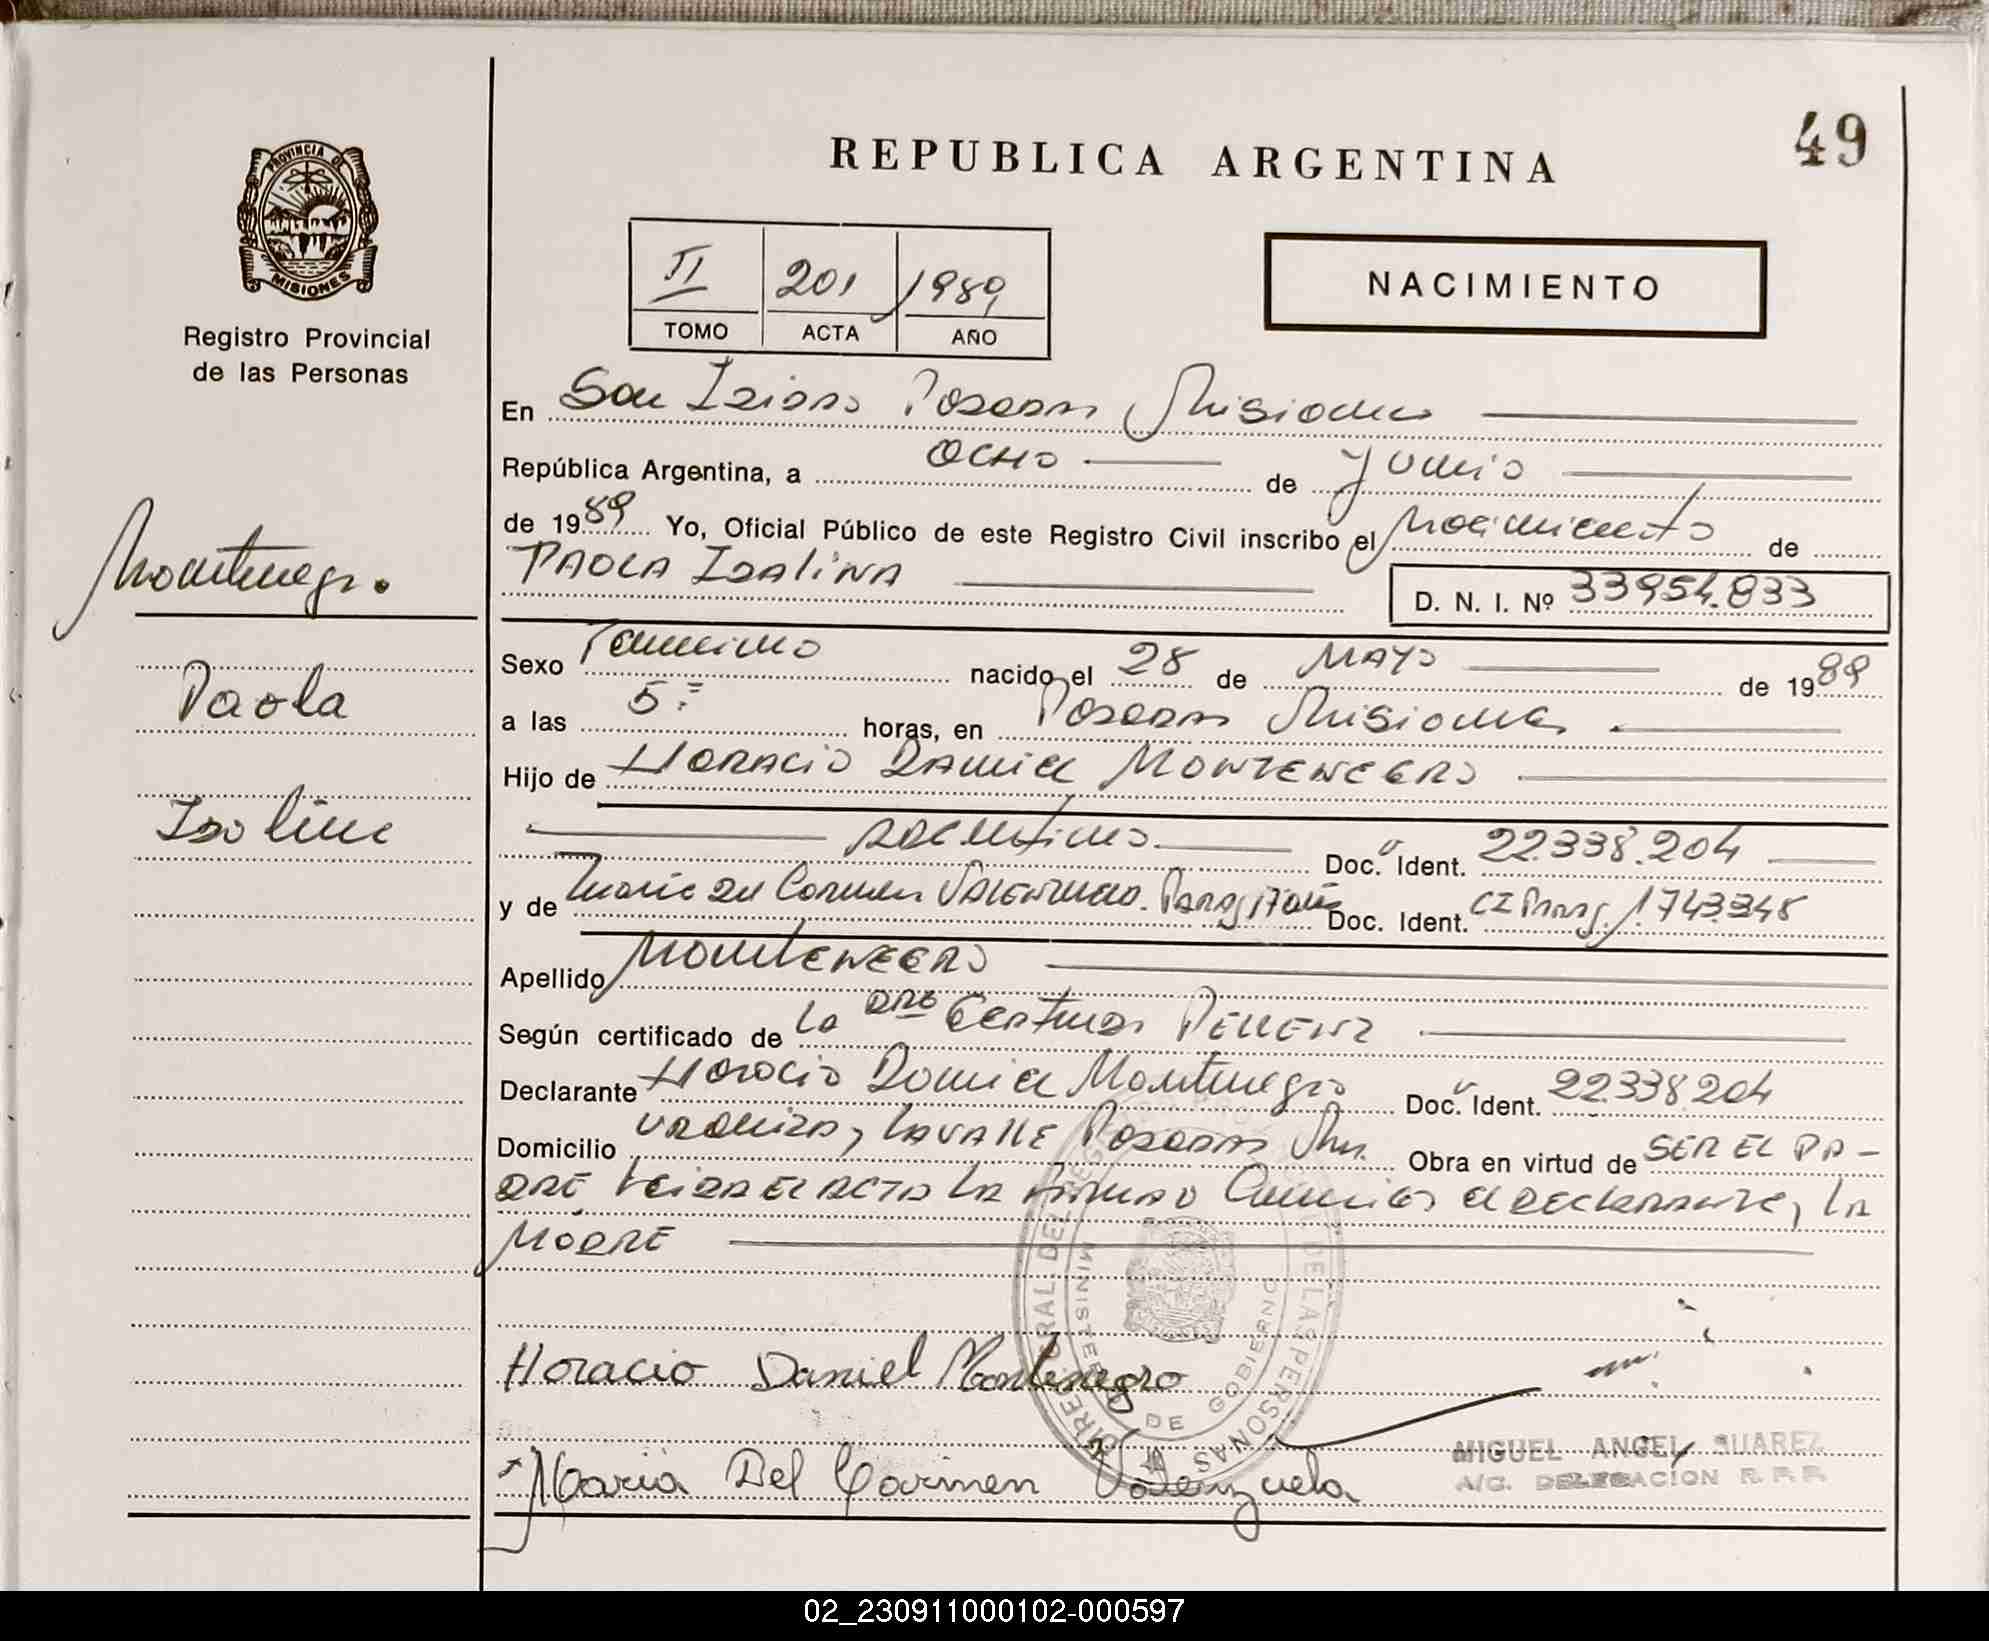 49
REPUBLICA ARGENTINA
PROVINCIA DE
MISIONES
Registro Provincial
de las Personas
II 201 1989
TOMO ACTA AÑO
NACIMIENTO
En San Isidro Posadas Misiones
República Argentina, a OCHO de Junio
de 1989 Yo, Oficial Público de este Registro Civil inscribo el Nacimiento de
PAOLA ISALINA
D. N. I. Nº 33954.833
Montenegro
Paola
Sexo Femenino nacido el 28 de MAYO de 1989
a las 5.= horas, en Posadas Misiones
Hijo de HORACIO DANIEL MONTENEGRO
Argentino Doc. Ident. 22.338.204
y de María del Carmen VALENZUELA. Doc. Ident. CI Parag. 1.743.345
Apellido MONTENEGRO
Según certificado de La Dra Pellenz
Declarante Horacio Daniel Montenegro Doc. Ident. 22.338.204
Domicilio URQUIZA y LAVALLE POSADAS Mnes. Obra en virtud de SER EL PA-
DRE Leida EL ACTA LA firman Conmigo el DECLARANTE, y LA
MADRE
DIRECCION GENERAL DEL REGISTRO PROVINCIAL DE LAS PERSONAS
MINISTERIO DE GOBIERNO
Horacio Daniel Montenegro
María Del Carmen Valenzuela
MIGUEL ANGEL SUAREZ
A/C. DELEGACION R. P. P.
02_230911000102-000597